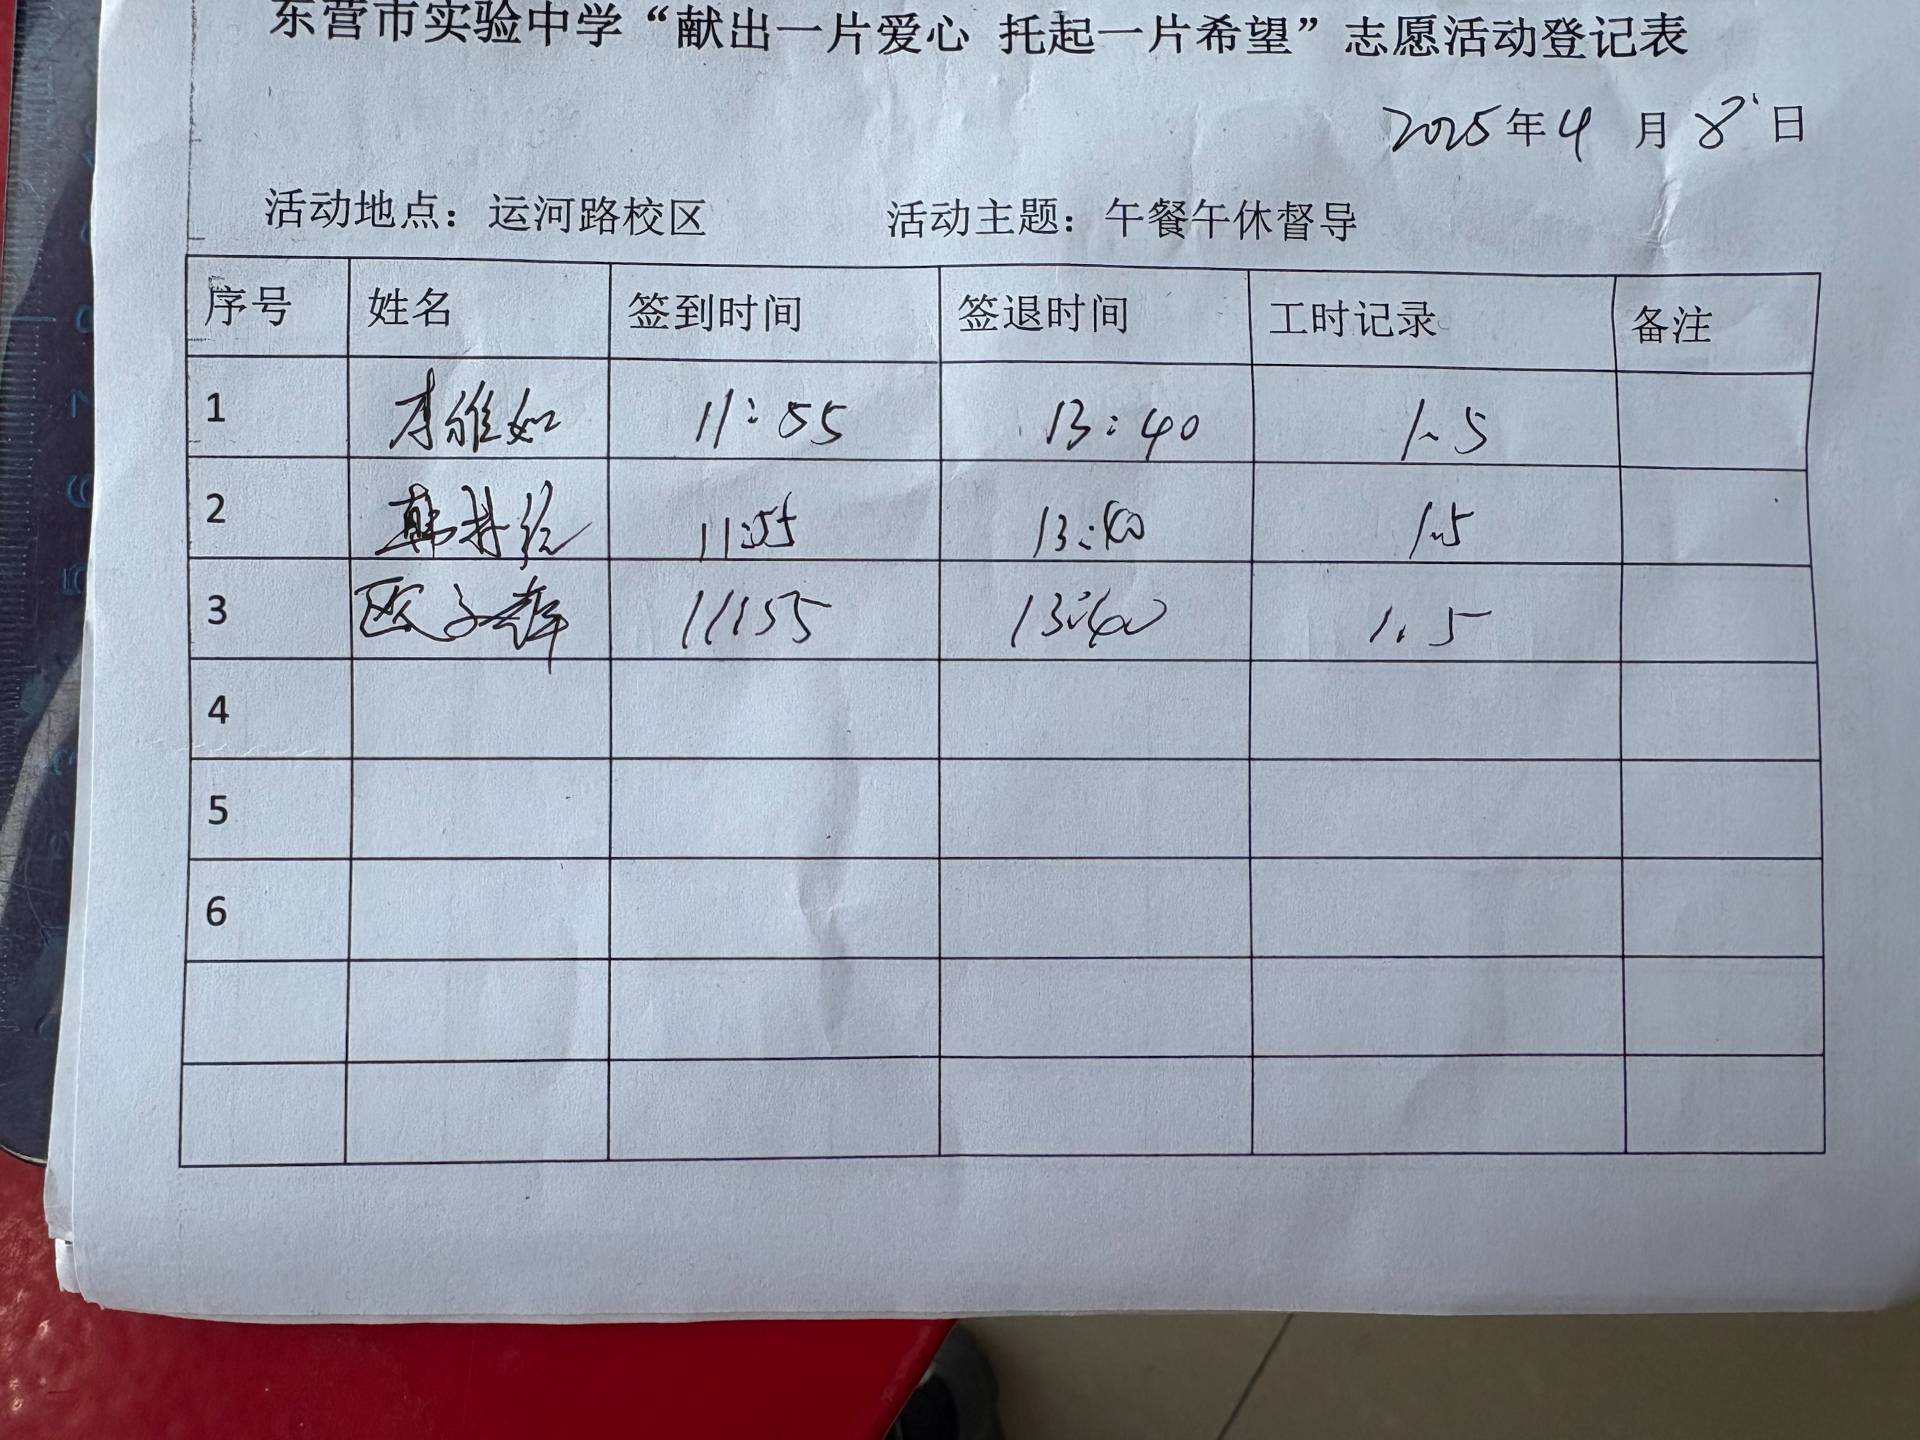 东营市实验中学“献出一片爱心 托起一片希望”志愿活动登记表
2025年4月8日
活动地点：运河路校区 活动主题：午餐午休督导
序号 姓名 签到时间 签退时间 工时记录 备注
1 李雅如 11:55 13:40 1.5
2 韩 11:55 13:40 1.5
3 欧子 11:55 13:40 1.5
4
5
6